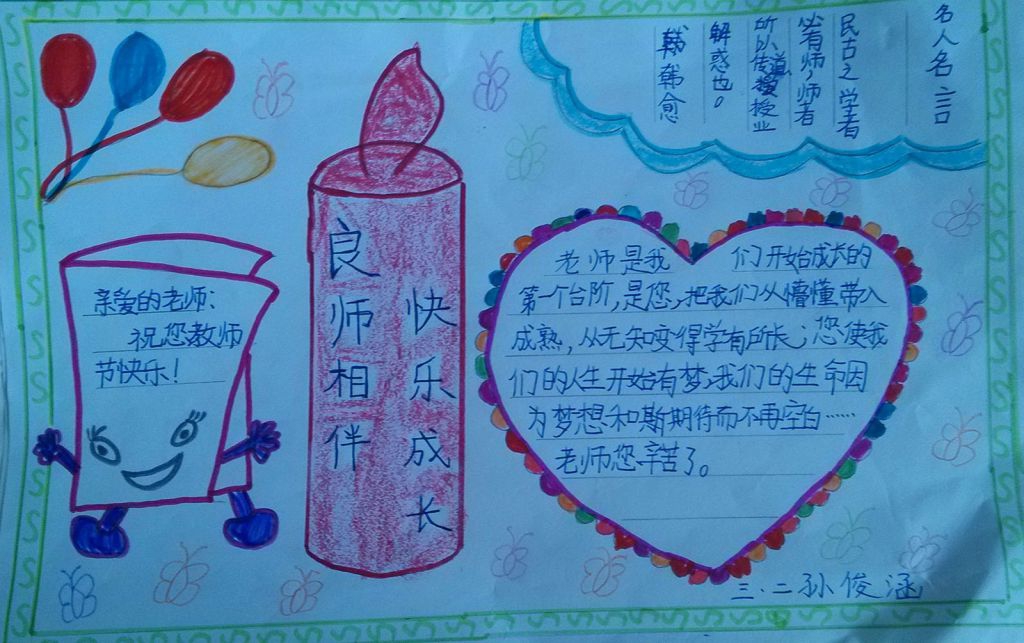 名人名言
民古之学者
必有师，师者
所以传道授业
解惑也。
韩愈
良师相伴
快乐成长
亲爱的老师：
祝您教师
节快乐！
老师是我们开始成长的
第一个台阶，是您，把我们从懵懂带入
成熟，从无知变得学有所长；您使我
们的人生开始有梦，我们的生命因
为梦想和期待而不再空白……
老师您辛苦了。
三.二孙俊涵